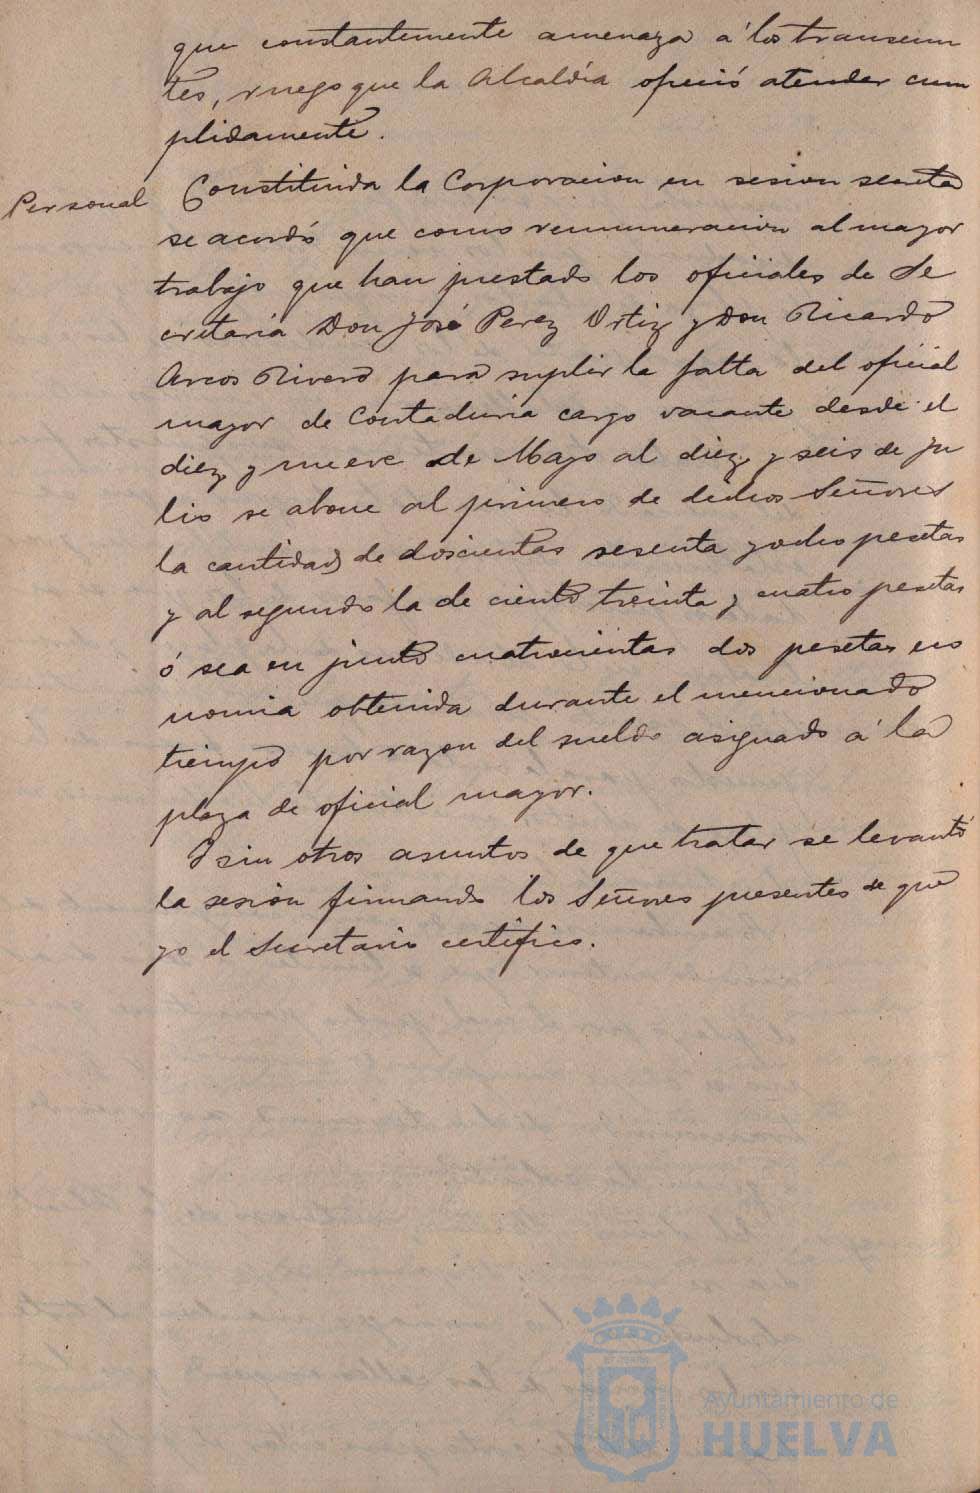 que constantemente amenaza á los transeun
tes, ruego que la Alcaldía ofreció atender cum
plidamente.
Personal
Constituida la Corporacion en sesion secreta
se acordó que como remuneracion al mayor
trabajo que han prestado los oficiales de Se
cretaria Don José Perez Ortiz y Don Ricardo
Arcos Rivero para suplir la falta del oficial
mayor de Contaduria cargo vacante desde el
diez y nueve de Mayo al diez y seis de Ju
lio se abone al primero de dichos Señores
la cantidad de doscientas sesenta y ocho pesetas
y al segundo la de ciento treinta y cuatro pesetas
ó sea en junto cuatrocientas dos pesetas eco
nomia obtenida durante el mencionado
tiempo por razon del sueldo asignado á la
plaza de oficial mayor.
Y sin otros asuntos de que tratar se levantó
la sesion firmando los Señores presentes de que
yo el Secretario certifico.
Ayuntamiento de
HUELVA